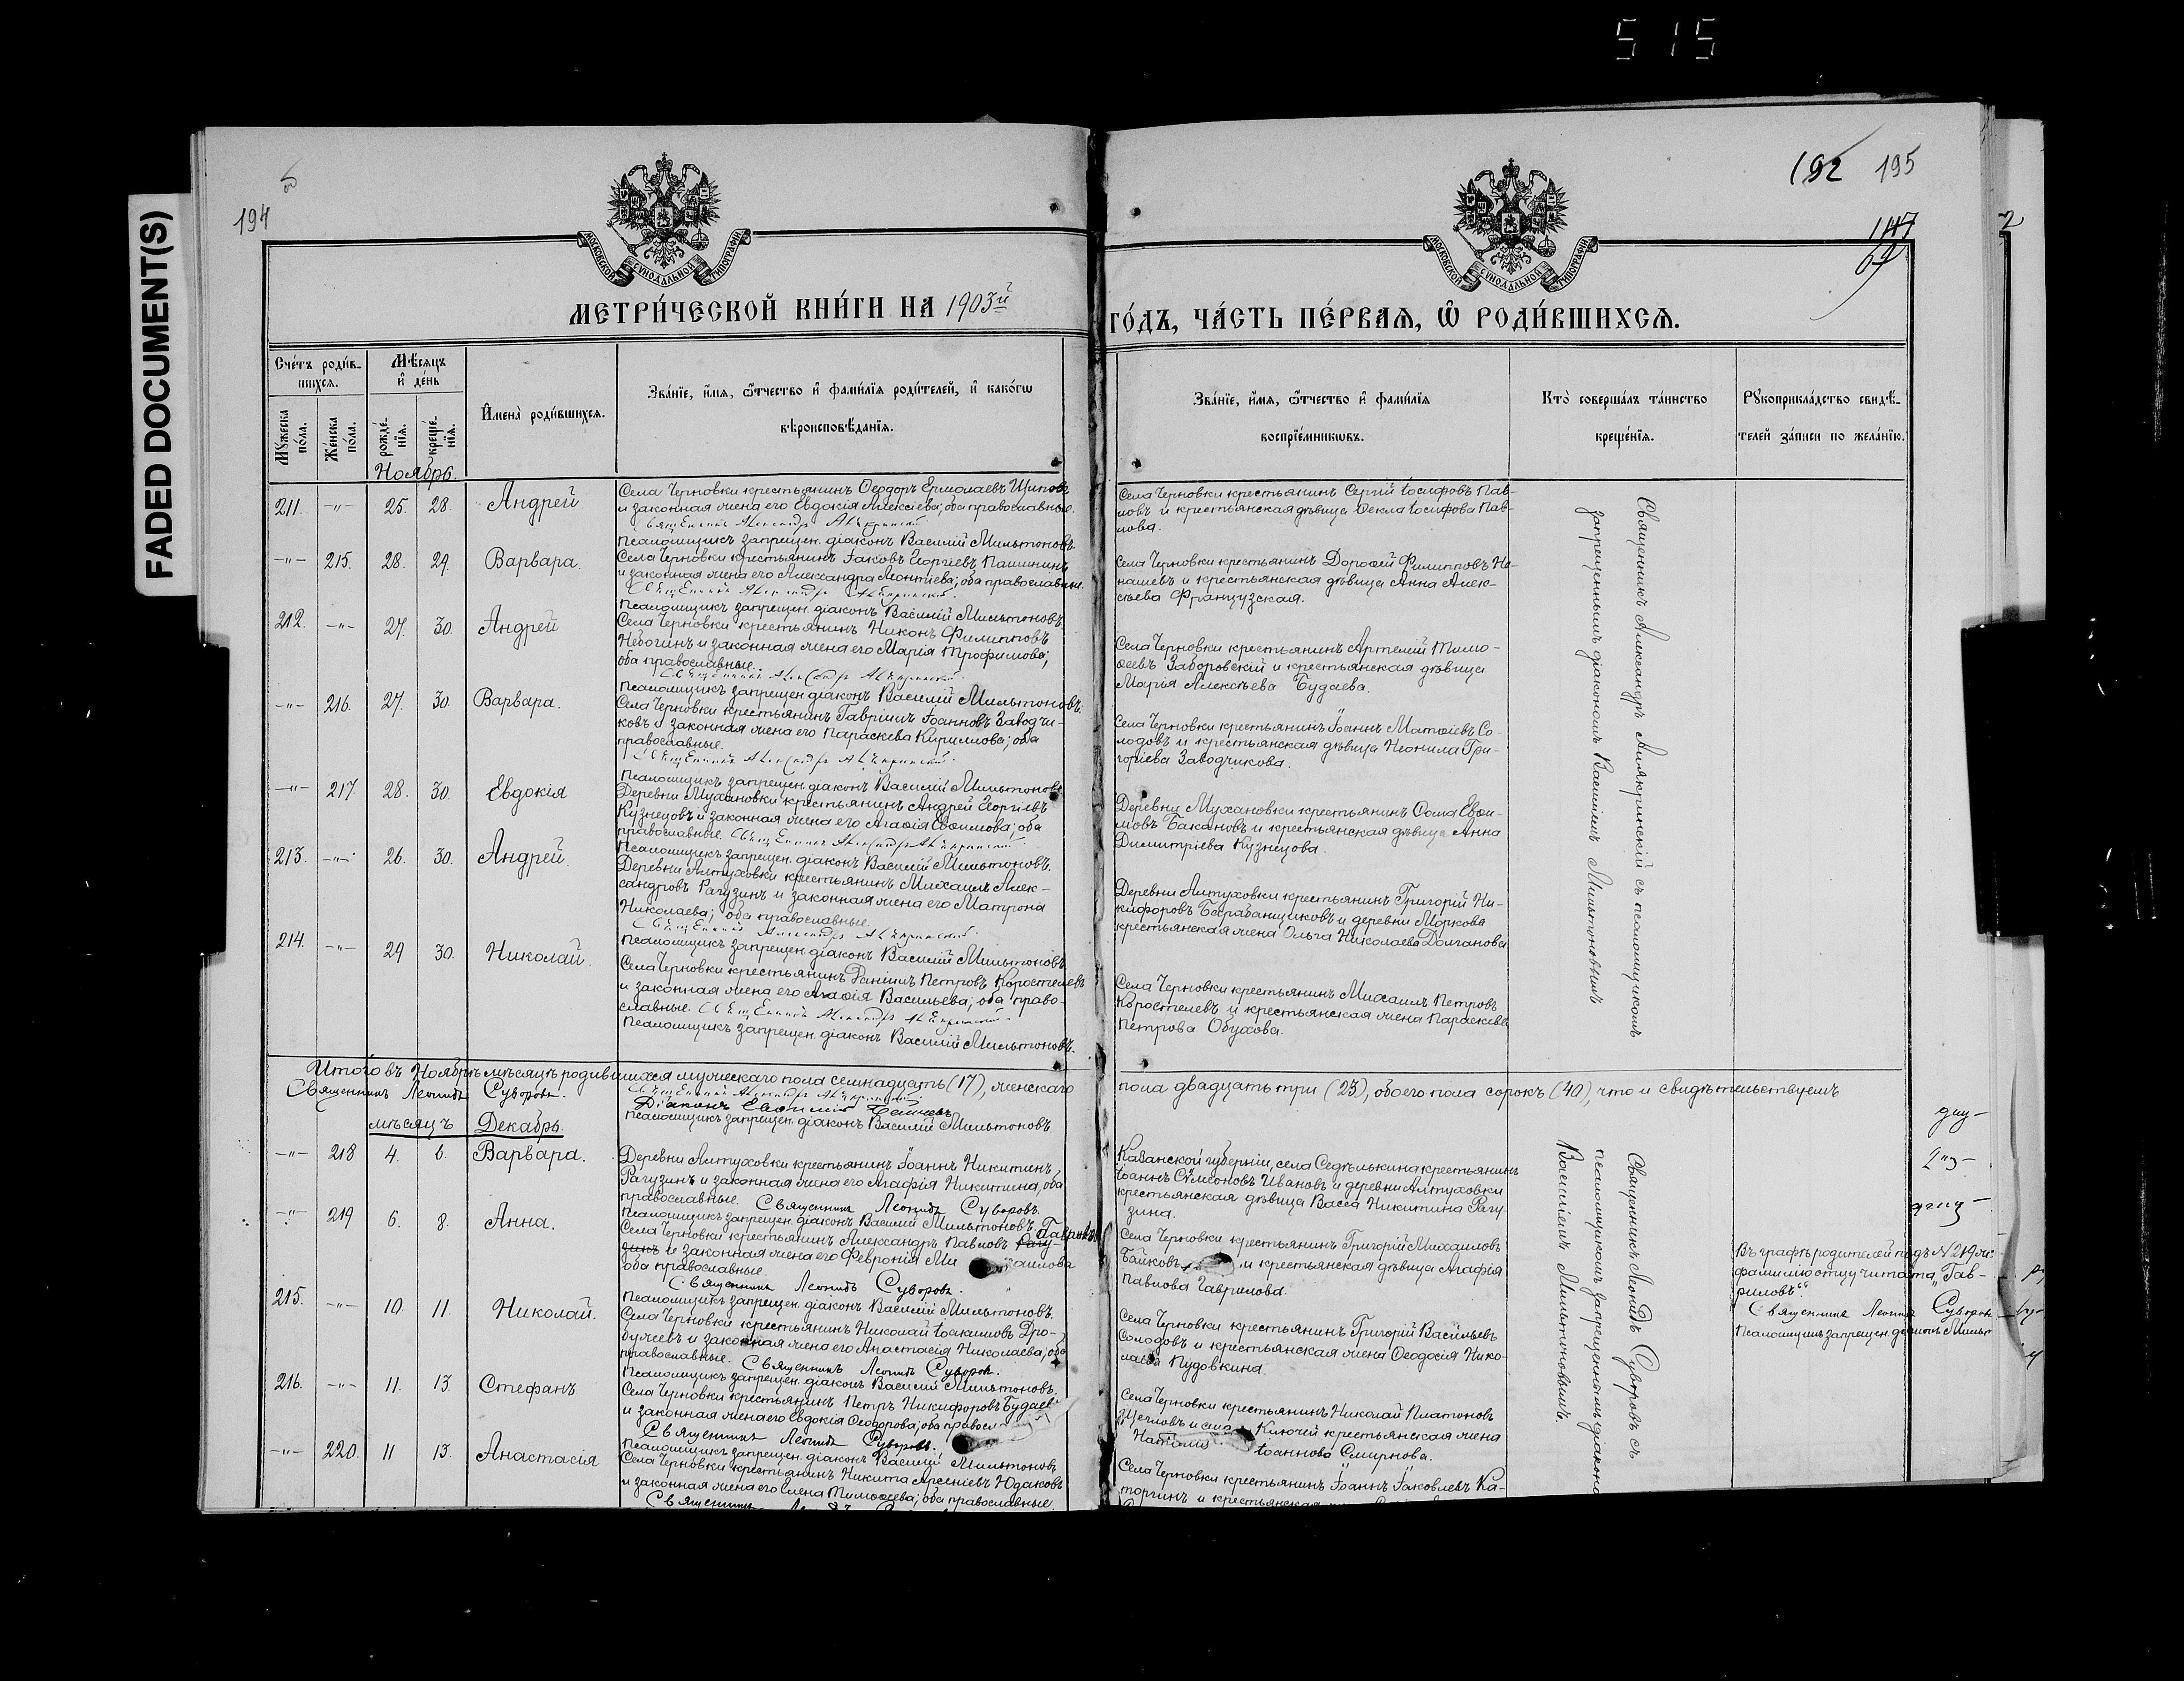 515
FADED DOCUMENT(S)
194
192 195
147
69
2
МОСКОВСКОЙ СѴНОДАЛЬНОЙ ТИПОГРАФІИ
МОСКОВСКОЙ СѴНОДАЛЬНОЙ ТИПОГРАФІИ
МЕТРИ́ЧЕСКОЙ КНИ́ГИ НА 1903й
ГО́ДЪ, ЧА́СТЬ ПЕ́РВАѦ, Ѡ҆ РОДИ́ВШИХСѦ.
Сче́тъ роди́в-
шихсѧ.
Мꙋ́жеска по́ла.
Же́нска по́ла.
Мѣ́сѧцъ и҆ де́нь
рожде́-нїѧ.
креще́-нїѧ.
И҆мена̀ роди́вшихсѧ.
Зва́нїе, и҆́мѧ, ѻ҆́тчество и҆ фами́лїѧ роди́телей, и҆ како́гѡ
вѣроисповѣ́данїѧ.
Зва́нїе, и҆́мѧ, ѻ҆́тчество и҆ фами́лїѧ
воспрїе́мникѡвъ.
Кто̀ соверша́лъ та́инство
креще́нїѧ.
Рꙋкоприкла́дство свидѣ́-
телей за́писи по жела́нїю.
Ноябрь.
211. -"- 25. 28. Андрей
Села Черновки крестьянинъ Ѳеодоръ Ермолаевъ Щиповъ
и законная жена его Евдокія Алексіева; оба православные.
Священникъ Александръ
Псаломщикъ запрещен. діаконъ Василій Мильтоновъ.
Села Черновки крестьянинъ Сергій Іосифовъ Пав-
ловъ и крестьянская дѣвица Ѳекла Іосифова Пав-
лова.
-"- 215. 28. 29. Варвара.
Села Черновки крестьянинъ Іаковъ Георгіевъ Пашининъ
и законная жена его Александра Леонтіева; оба православные.
Священникъ Александръ
Псаломщикъ запрещен. діаконъ Василій Мильтоновъ.
Села Черновки крестьянинъ Дороѳей Филипповъ Не-
нашевъ и крестьянская дѣвица Анна Алек-
сѣева Французская.
212. -"- 27. 30. Андрей
Села Черновки крестьянинъ Никонъ Филипповъ
Небогинъ и законная жена его Марія Трофимова;
оба православные.
Священникъ Александръ
Псаломщикъ запрещен. діаконъ Василій Мильтоновъ.
Села Черновки крестьянинъ Артемій Тимо-
ѳеевъ Заборовскій и крестьянская дѣвица
Марія Алексѣева Будаева.
-"- 216. 27. 30. Варвара.
Села Черновки крестьянинъ Гавриилъ Іоанновъ Заводчи-
ковъ и законная жена его Параскева Кириллова; оба
православные.
Священникъ Александръ
Псаломщикъ запрещен. діаконъ Василій Мильтоновъ.
Села Черновки крестьянинъ Іоаннъ Матѳіевъ Со-
лодовъ и крестьянская дѣвица Неонила Гри-
горіева Заводчикова.
-"- 217. 28. 30. Евдокія
Деревни Мухановки крестьянинъ Андрей Георгіевъ
Кузнецовъ и законная жена его Агаѳія Евѳимова; оба
православные. Священникъ Александръ
Псаломщикъ запрещен. діаконъ Василій Мильтоновъ.
Деревни Мухановки крестьянинъ Ѳома Евѳи-
мовъ Бакановъ и крестьянская дѣвица Анна
Димитріева Кузнецова.
213. -"- 26. 30. Андрей.
Деревни Алтуховки крестьянинъ Михаилъ Алек-
сандровъ Рагузинъ и законная жена его Матрона
Николаева; оба православные.
Священникъ Александръ
Псаломщикъ запрещен. діаконъ Василій Мильтоновъ
Деревни Алтуховки крестьянинъ Григорій Ни-
кифоровъ Барабанщиковъ и деревни Моркова
крестьянская жена Ольга Николаева Долганова
214. -"- 29 30. Николай.
Села Черновки крестьянинъ Даніилъ Петровъ Коростелевъ
и законная жена его Агаѳія Васильева; оба право-
славные. Священникъ Александръ
Псаломщикъ запрещен. діаконъ Василій Мильтоновъ.
Села Черновки крестьянинъ Михаилъ Петровъ
Коростелевъ и крестьянская жена Параскева
Петрова Обухова.
Священникъ Александръ съ псаломщикомъ
запрещеннымъ діакономъ Василіемъ Мильтоновымъ
Итого въ Ноябрѣ мѣсяцѣ родившихся мужескаго пола семнадцать (17), женскаго пола двадцать три (23), обоего пола сорокъ (40), что и свидѣтельствуемъ
Священникъ Леонидъ Суворовъ. Священникъ Александръ
Діаконъ Евѳимій
Псаломщикъ запрещен. діаконъ Василій Мильтоновъ
мѣсяцъ Декабрь.
-"- 218 4. 6. Варвара.
Деревни Алтуховки крестьянинъ Іоаннъ Никитинъ
Рагузинъ и законная жена его Агафія Никитина, оба
православные. Священникъ Леонидъ Суворовъ.
Псаломщикъ запрещен. діаконъ Василій Мильтоновъ.
Казанской губерніи, села Седѣлькина крестьянинъ
Іоаннъ Сѵмеоновъ Ивановъ и деревни Алтуховки
крестьянская дѣвица Васса Никитина Рагу-
зина.
-"- 219 6. 8. Анна.
Села Черновки крестьянинъ Александръ Павловъ Рагу- Гавриловъ
зинъ и законная жена его Февронія Ми аилова
оба православные
Священникъ Леонидъ Суворовъ.
Псаломщикъ запрещен. діаконъ Василій Мильтоновъ.
Села Черновки крестьянинъ Григорій Михаиловъ
Байковъ и крестьянская дѣвица Агафія
Павлова Гаврилова.
Въ графѣ родителей подъ № 219 мъ
фамилію отцу читать „Гав-
риловъ“.
Священникъ Леонидъ Суворовъ
Псаломщикъ запрещен. діаконъ Мильт
215. -"- 10. 11. Николай.
Села Черновки крестьянинъ Николай Іоакимовъ Дро-
бужевъ и законная жена его Анастасія Николаева; оба
православные. Священникъ Леонидъ Суворовъ.
Псаломщикъ запрещен. діаконъ Василій Мильтоновъ.
Села Черновки крестьянинъ Григорій Васильевъ
Солодовъ и крестьянская жена Ѳеодосія Нико-
лаева Пудовкина.
216. -"- 11. 13. Стефанъ
Села Черновки крестьянинъ Петръ Никифоровъ Будаевъ
и законная жена его Евдокія Ѳеодорова; оба правосл
Священникъ Леонидъ Суворовъ.
Псаломщикъ запрещен. діаконъ Василій Мильтоновъ
Села Черновки крестьянинъ Николай Платоновъ
Щегловъ и Ключей крестьянская жена
Наталія Іоаннова Смирнова.
-"- 220. 11 13. Анастасія
Села Черновки крестьянинъ Никита Арсеніевъ Юдаковъ
и законная жена его Елена Тимоѳеева; оба православные.
Священникъ
Села Черновки крестьянинъ Іоаннъ Іаковлевъ Ка-
торгинъ и крестьянская
Священникъ Леонидъ Суворовъ съ
псаломщикомъ запрещеннымъ діакономъ
Василіемъ Мильтоновымъ.